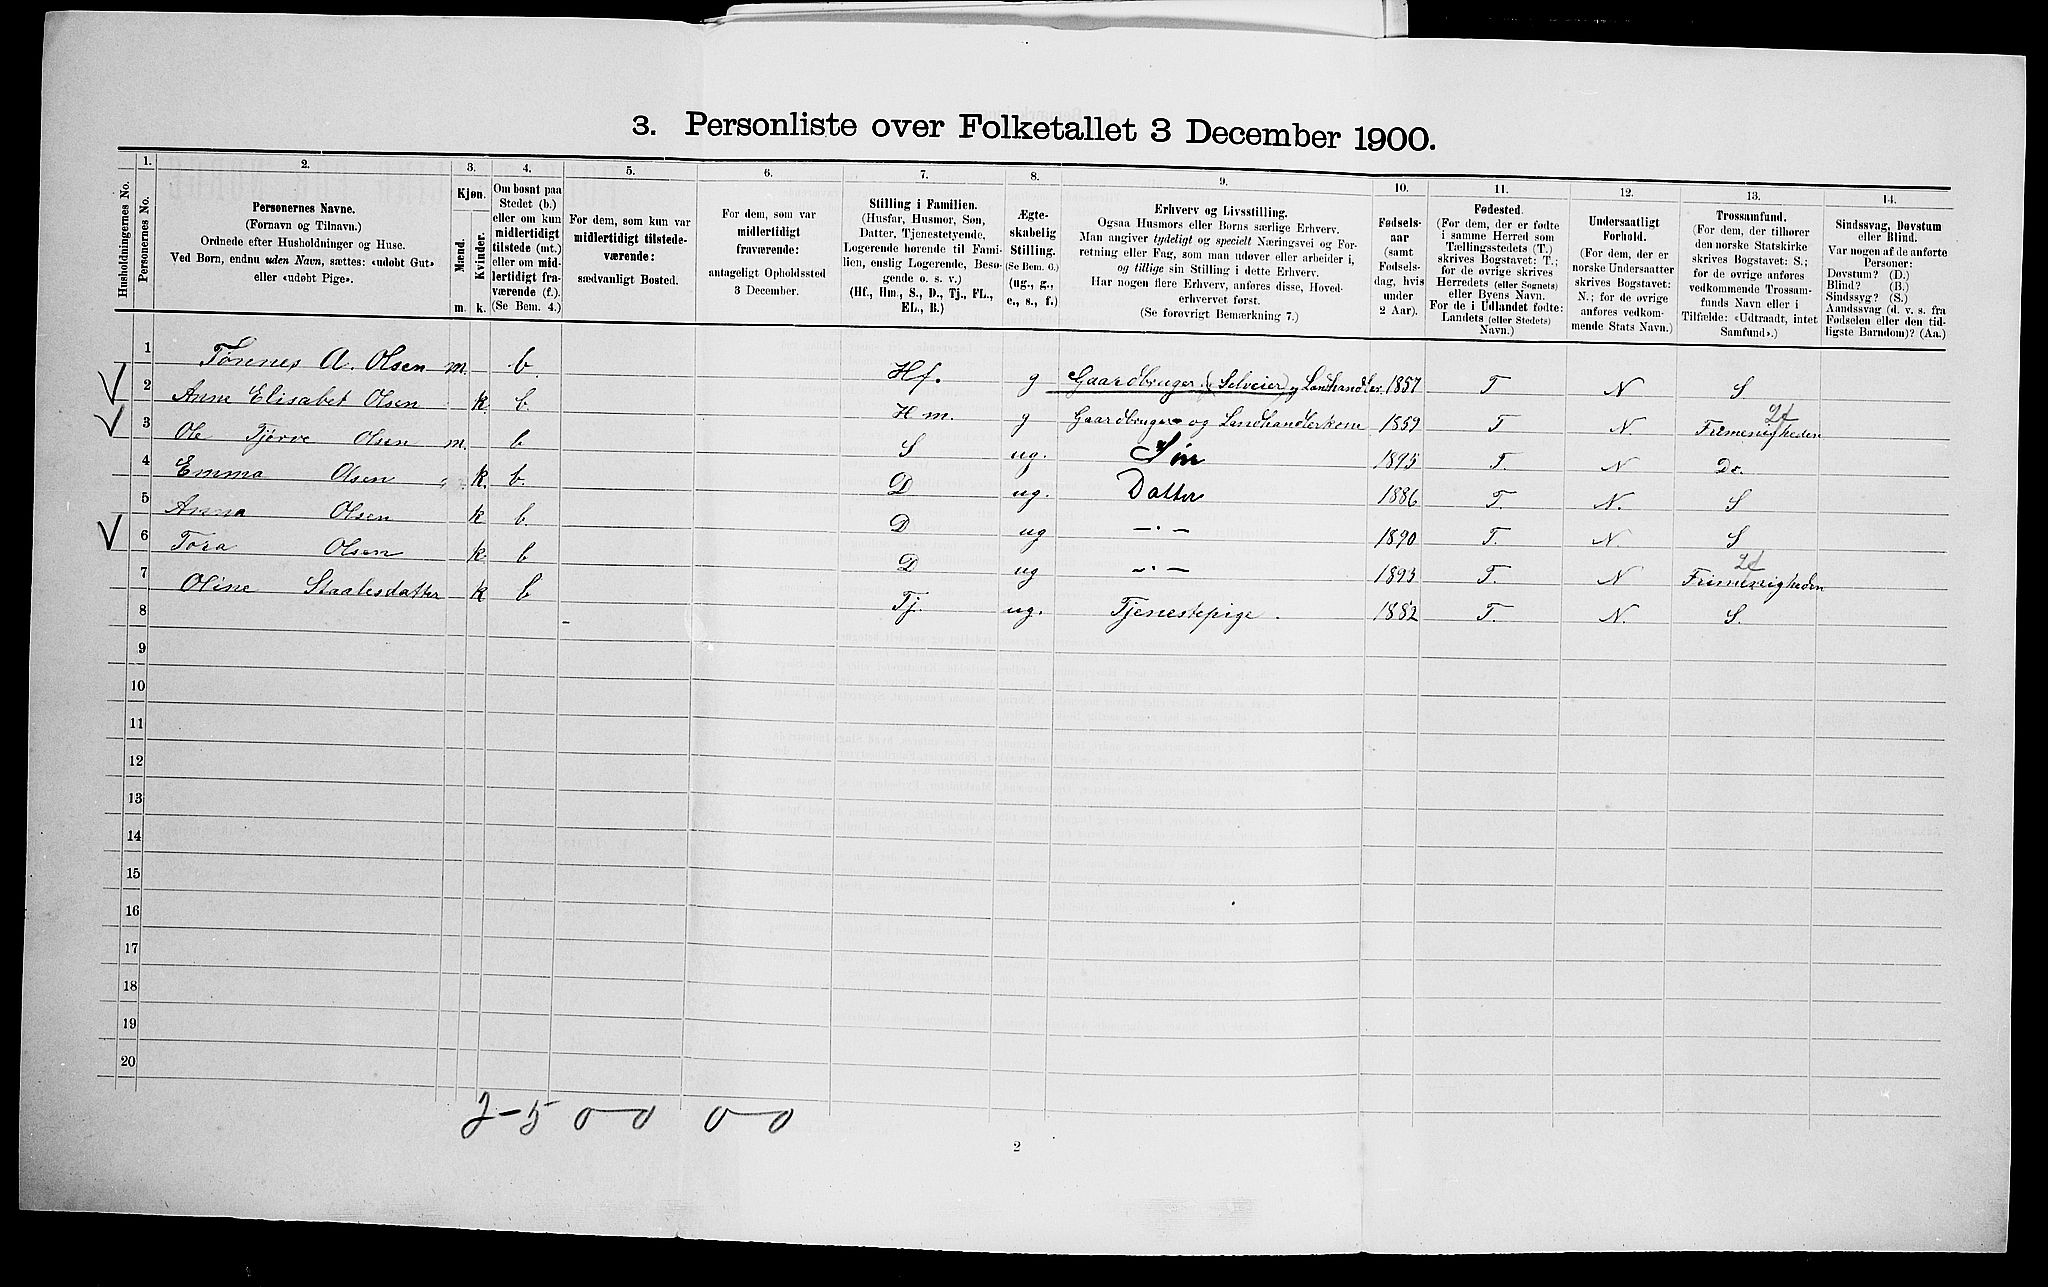 3. Personliste over Folketallet 3 December 1900.
Husholdningernes No.
1.
Personernes No.
2.
Personernes Navne.
(Fornavn og Tilnavn.)
Ordnede efter Husholdninger og Huse.
Ved Børn, endnu uden Navn, sættes: «udøbt Gut»
eller «udøbt Pige».
3.
Kjøn.
Mænd.
Kvinder.
m. k.
4.
Om bosat paa
Stedet (b.)
eller om kun
midlertidigt
tilstede (mt.)
eller om mid-
lertidigt fra-
værende (f.).
(Se Bem. 4.)
5.
For dem, som kun var
midlertidigt tilstede-
værende:
sædvanligt Bosted.
6.
For dem, som var
midlertidigt
fraværende:
antageligt Opholdssted
3 December.
7.
Stilling i Familien.
(Husfar, Husmor, Søn,
Datter, Tjenestetyende,
Logerende hørende til Fami-
lien, enslig Logerende, Besø-
gende o. s. v.)
(Hf., Hm., S., D., Tj., FL.,
EL., B.)
8.
Ægte-
skabelig
Stilling.
(Se Bem. 6.)
(ug., g.,
e., s., f.)
9.
Erhverv og Livsstilling.
Ogsaa Husmors eller Børns særlige Erhverv.
Man angiver tydeligt og specielt Næringsvei og For-
retning eller Fag, som man udøver eller arbeider i,
og tillige sin Stilling i dette Erhverv.
Har nogen flere Erhverv, anføres disse, Hoved-
erhvervet først.
(Se forøvrigt Bemærkning 7.)
10.
Fødsels-
aar
(samt
Fødsels-
dag, hvis
under
2 Aar).
11.
Fødested.
(For dem, der er fødte
i samme Herred som
Tællingsstedets (T.)
skrives Bogstavet: T.;
for de øvrige skrives
Herredets (eller Sognets)
eller Byens Navn.
For de i Udlandet fødte:
Landets (eller Stedets)
Navn.)
12.
Undersaatligt
Forhold.
(For dem, der er
norske Undersaatter
skrives Bogstavet:
N.; for de øvrige
anføres vedkom-
mende Stats Navn.)
13.
Trossamfund.
(For dem, der tilhører
den norske Statskirke
skrives Bogstavet: S.;
for de øvrige anføres
vedkommende Trossam-
funds Navn eller i
Tilfælde: «Udtraadt, intet
Samfund».)
14.
Sindssvag, Døvstum
eller Blind.
Var nogen af de anførte
Personer:
Døvstum? (D.)
Blind? (B.)
Sindssyg? (S.)
Aandssvag (d. v. s. fra
Fødselen eller den tid-
ligste Barndom)? (Aa.)
1 Tønnes A. Olsen m. b. Hf. g Gaardbruger (Selveier) og Landhandler 1857 T N S
2 Anne Elisabet Olsen k b. Hm. g Gaardbruger og Landhandlerkone 1859 T N. Frimenigheden
3 Ole Tjerve Olsen m. b S ug. Søn 1895 T. N Do.
4 Emma Olsen k. b. D ug. Datter 1886 T. N. S
5 Anna Olsen k b. D ug —·— 1890 T. N. S
6 Tora Olsen k. b D ug —·— 1893 T. N Frimenigheden
7 Oline Staalesdatter k b Tj. ug. Tjenestepige. 1882 T. N. S.
8
9
10
11
12
13
14
15
16
17
18
19
20
2-5 0—0 0—0
2